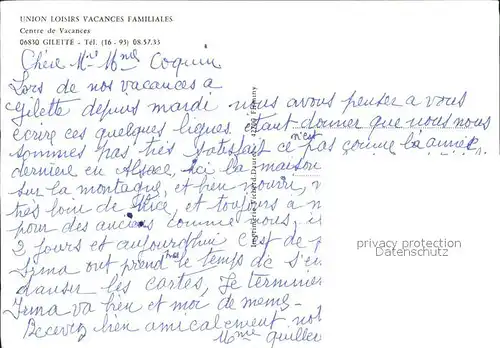 UNION LOISIRS VACANCES FAMILIALES
Centre de Vacances
06830 GILETTE - Tél. (16 - 93) 08.57.33
Chère Mr Mme Coquin
Lors de nos vacances a
Gilette depuis mardi nous avons penser a vous
ecrire ces quelques lignes. Etant donner que nous nous
sommes pas très satisfait ce n'est pas comme la année
dernière en Alsace, ici la maison
sur la montagne, et bien nourri,
très loin de Nice, et toujours a
pour des anciens comme nous,
2 jours et aujourd'hui c'est de
Irma ont prend le temps de
danser les cartes, Je terminer
Irma va bien et moi de meme -
Recevez bien amicalement
Mme
privacy protection
Datenschutz